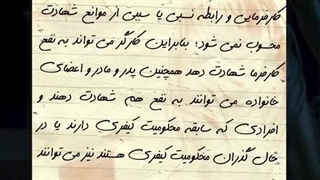 کارفرمایی و رابطه نسبی یا سببی از موانع شهادت
محسوب نمی شود؛ بنابراین کارگر می تواند به نفع
کارفرما شهادت دهد همچنین پدر و مادر و اعضای
خانواده می توانند به نفع هم شهادت دهند و
افرادی که سابقه محکومیت کیفری دارند یا در
حال گذران محکومیت کیفری هستند نیز می توانند